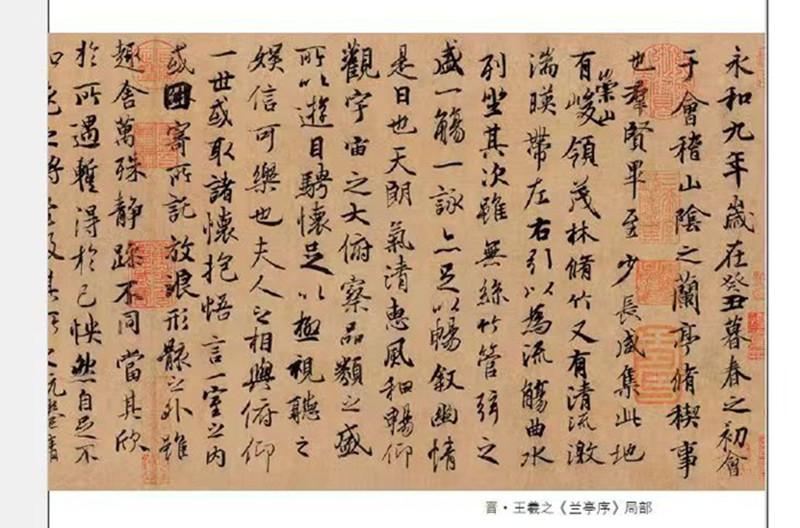 永和九年歲在癸丑暮春之初會
于會稽山陰之蘭亭脩稧事
也羣賢畢至少長咸集此地
有崇山峻領茂林脩竹又有清流激
湍暎帶左右引以為流觴曲水
列坐其次雖無絲竹管弦之
盛一觴一詠亦足以暢敘幽情
是日也天朗氣清惠風和暢仰
觀宇宙之大俯察品類之盛
所以遊目騁懷足以極視聽之
娛信可樂也夫人之相與俯仰
一世或取諸懷抱悟言一室之內
或因寄所託放浪形骸之外雖
趣舍萬殊靜躁不同當其欣
於所遇暫得於己怏然自足不
晋·王羲之《兰亭序》局部